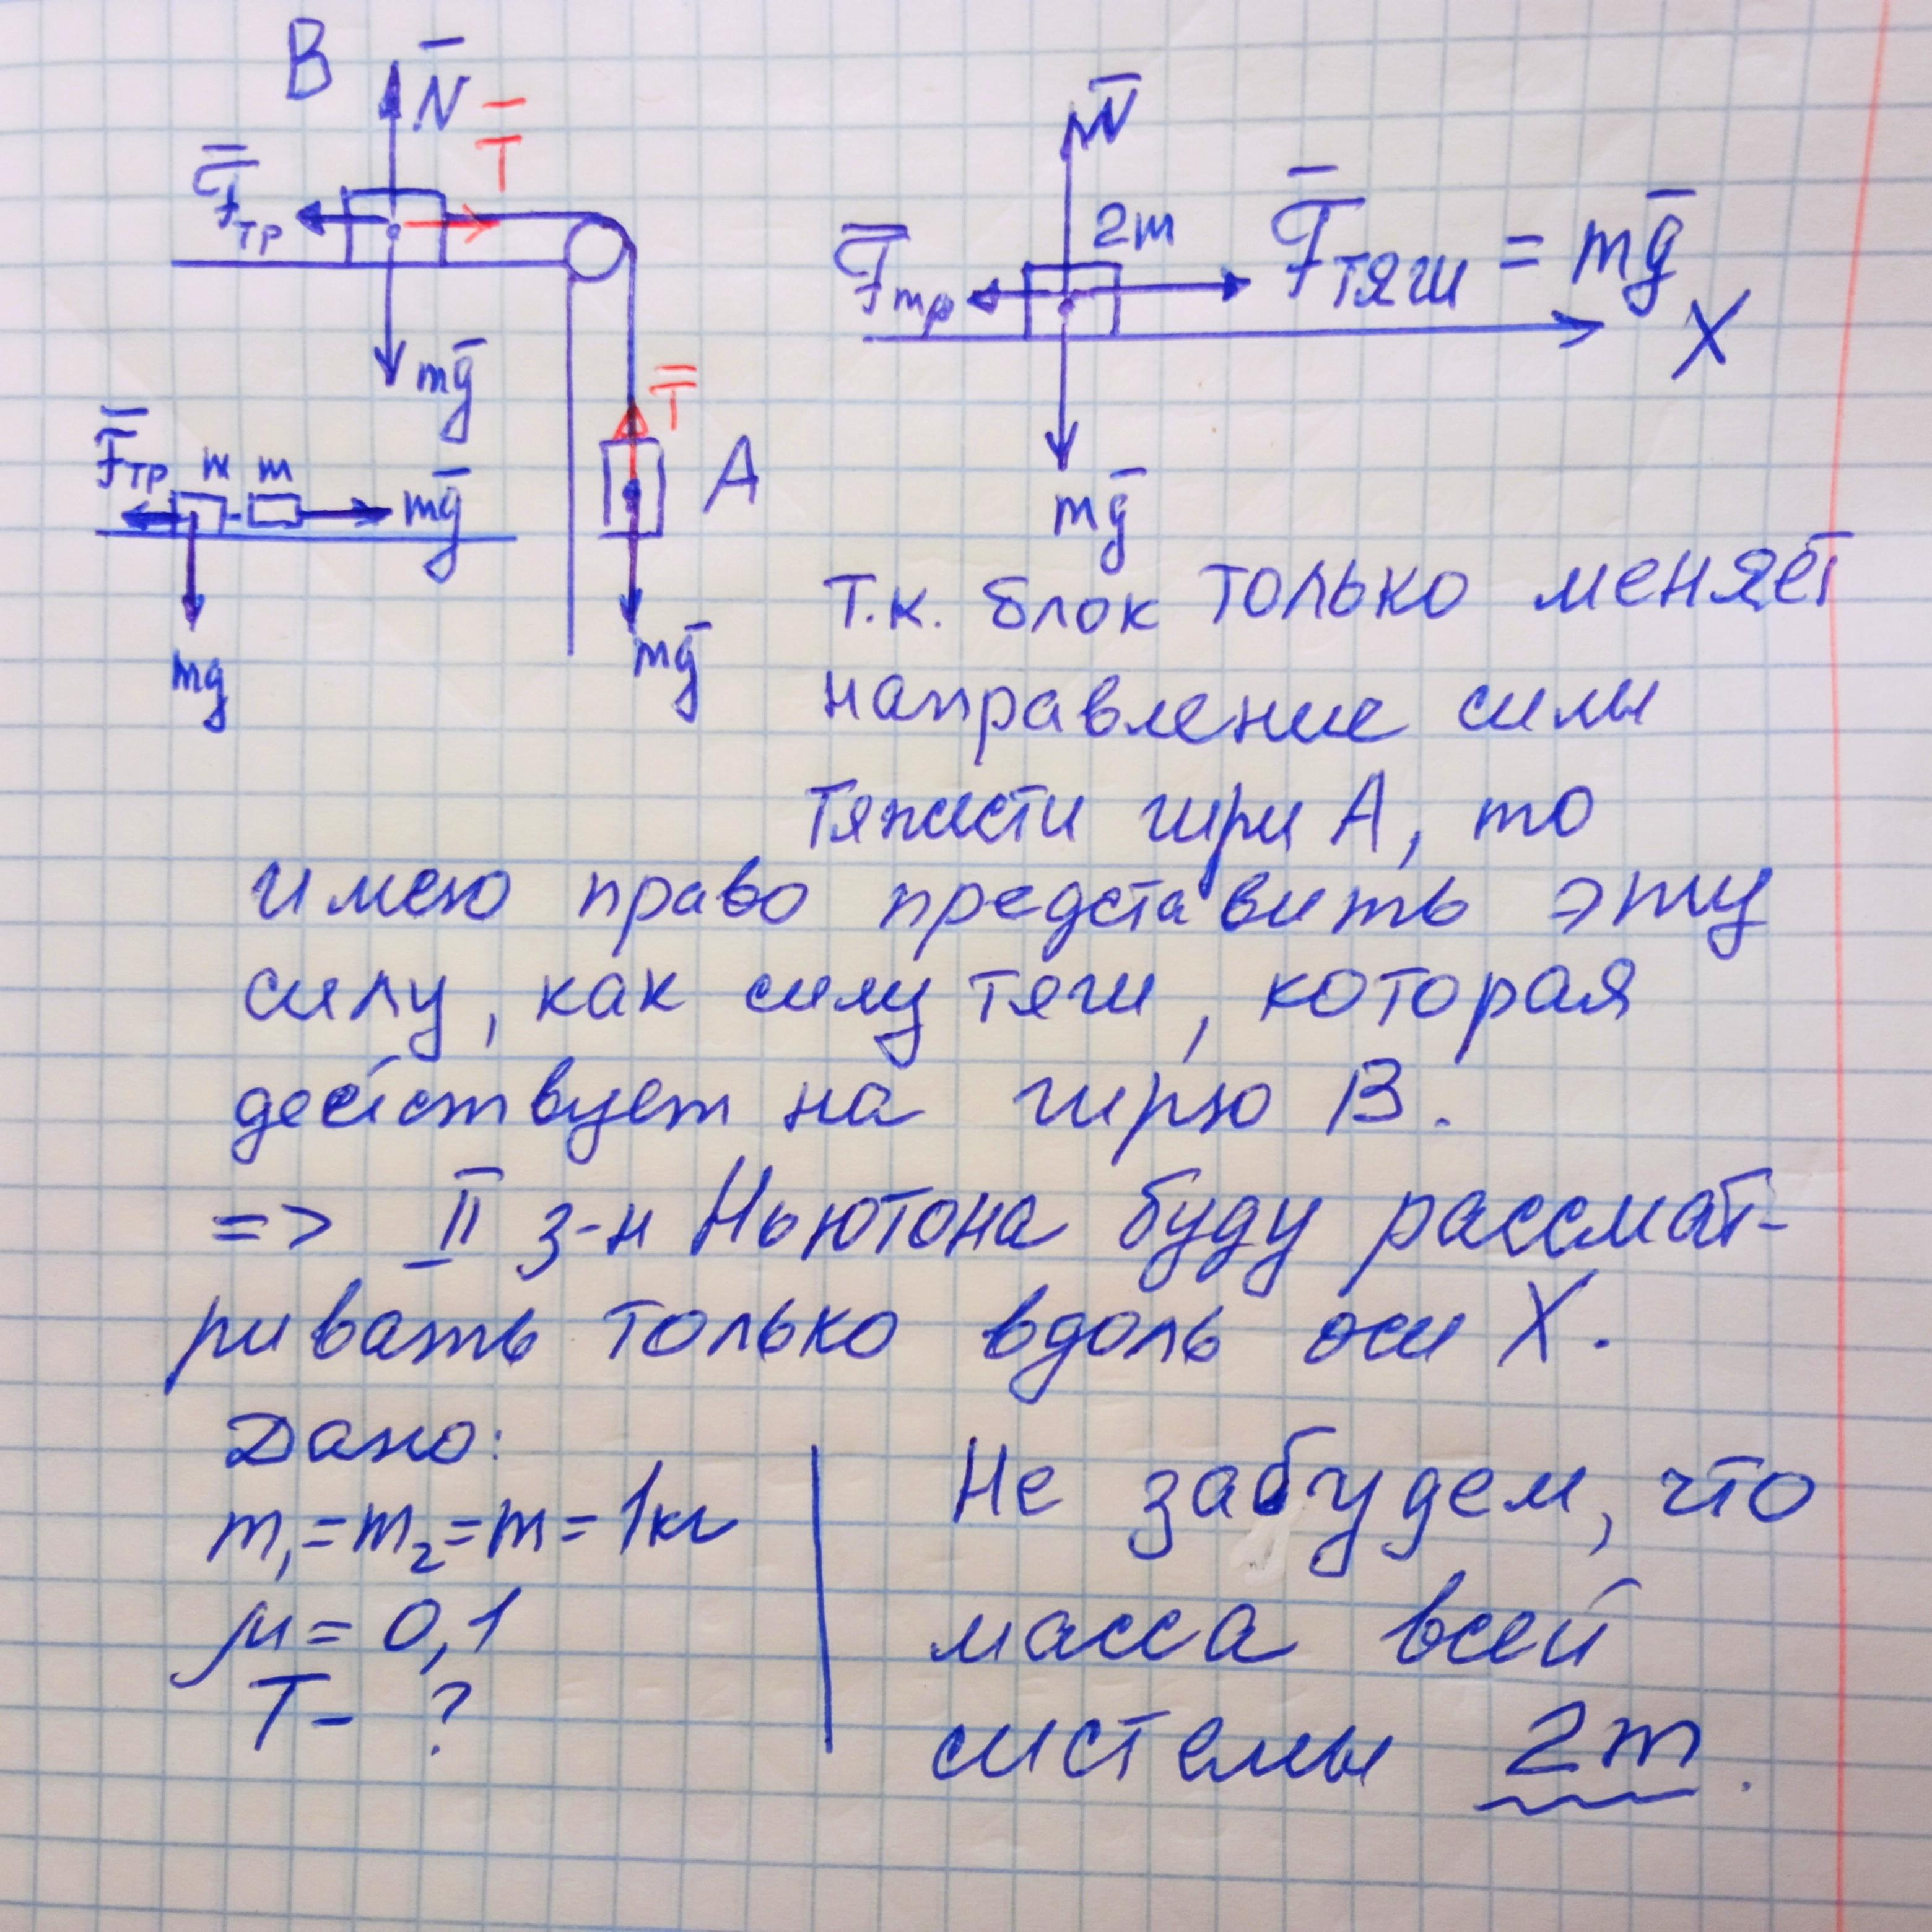 B
N̅
T̅
F̅тр
mg̅
F̅тр m m mg̅
mg
T̅
A
mg̅
N̅
2m
F̅тр
F̅тяги = mg̅
X
mg̅
Т.к. блок только меняет
направление силы
тяжести гири А, то
имею право представить эту
силу, как силу тяги, которая
действует на гирю В.
=> II з-н Ньютона буду рассмат-
ривать только вдоль оси X.
Дано:
m₁=m₂=m=1кг
μ= 0,1
T- ?
Не забудем, что
масса всей
системы 2m.